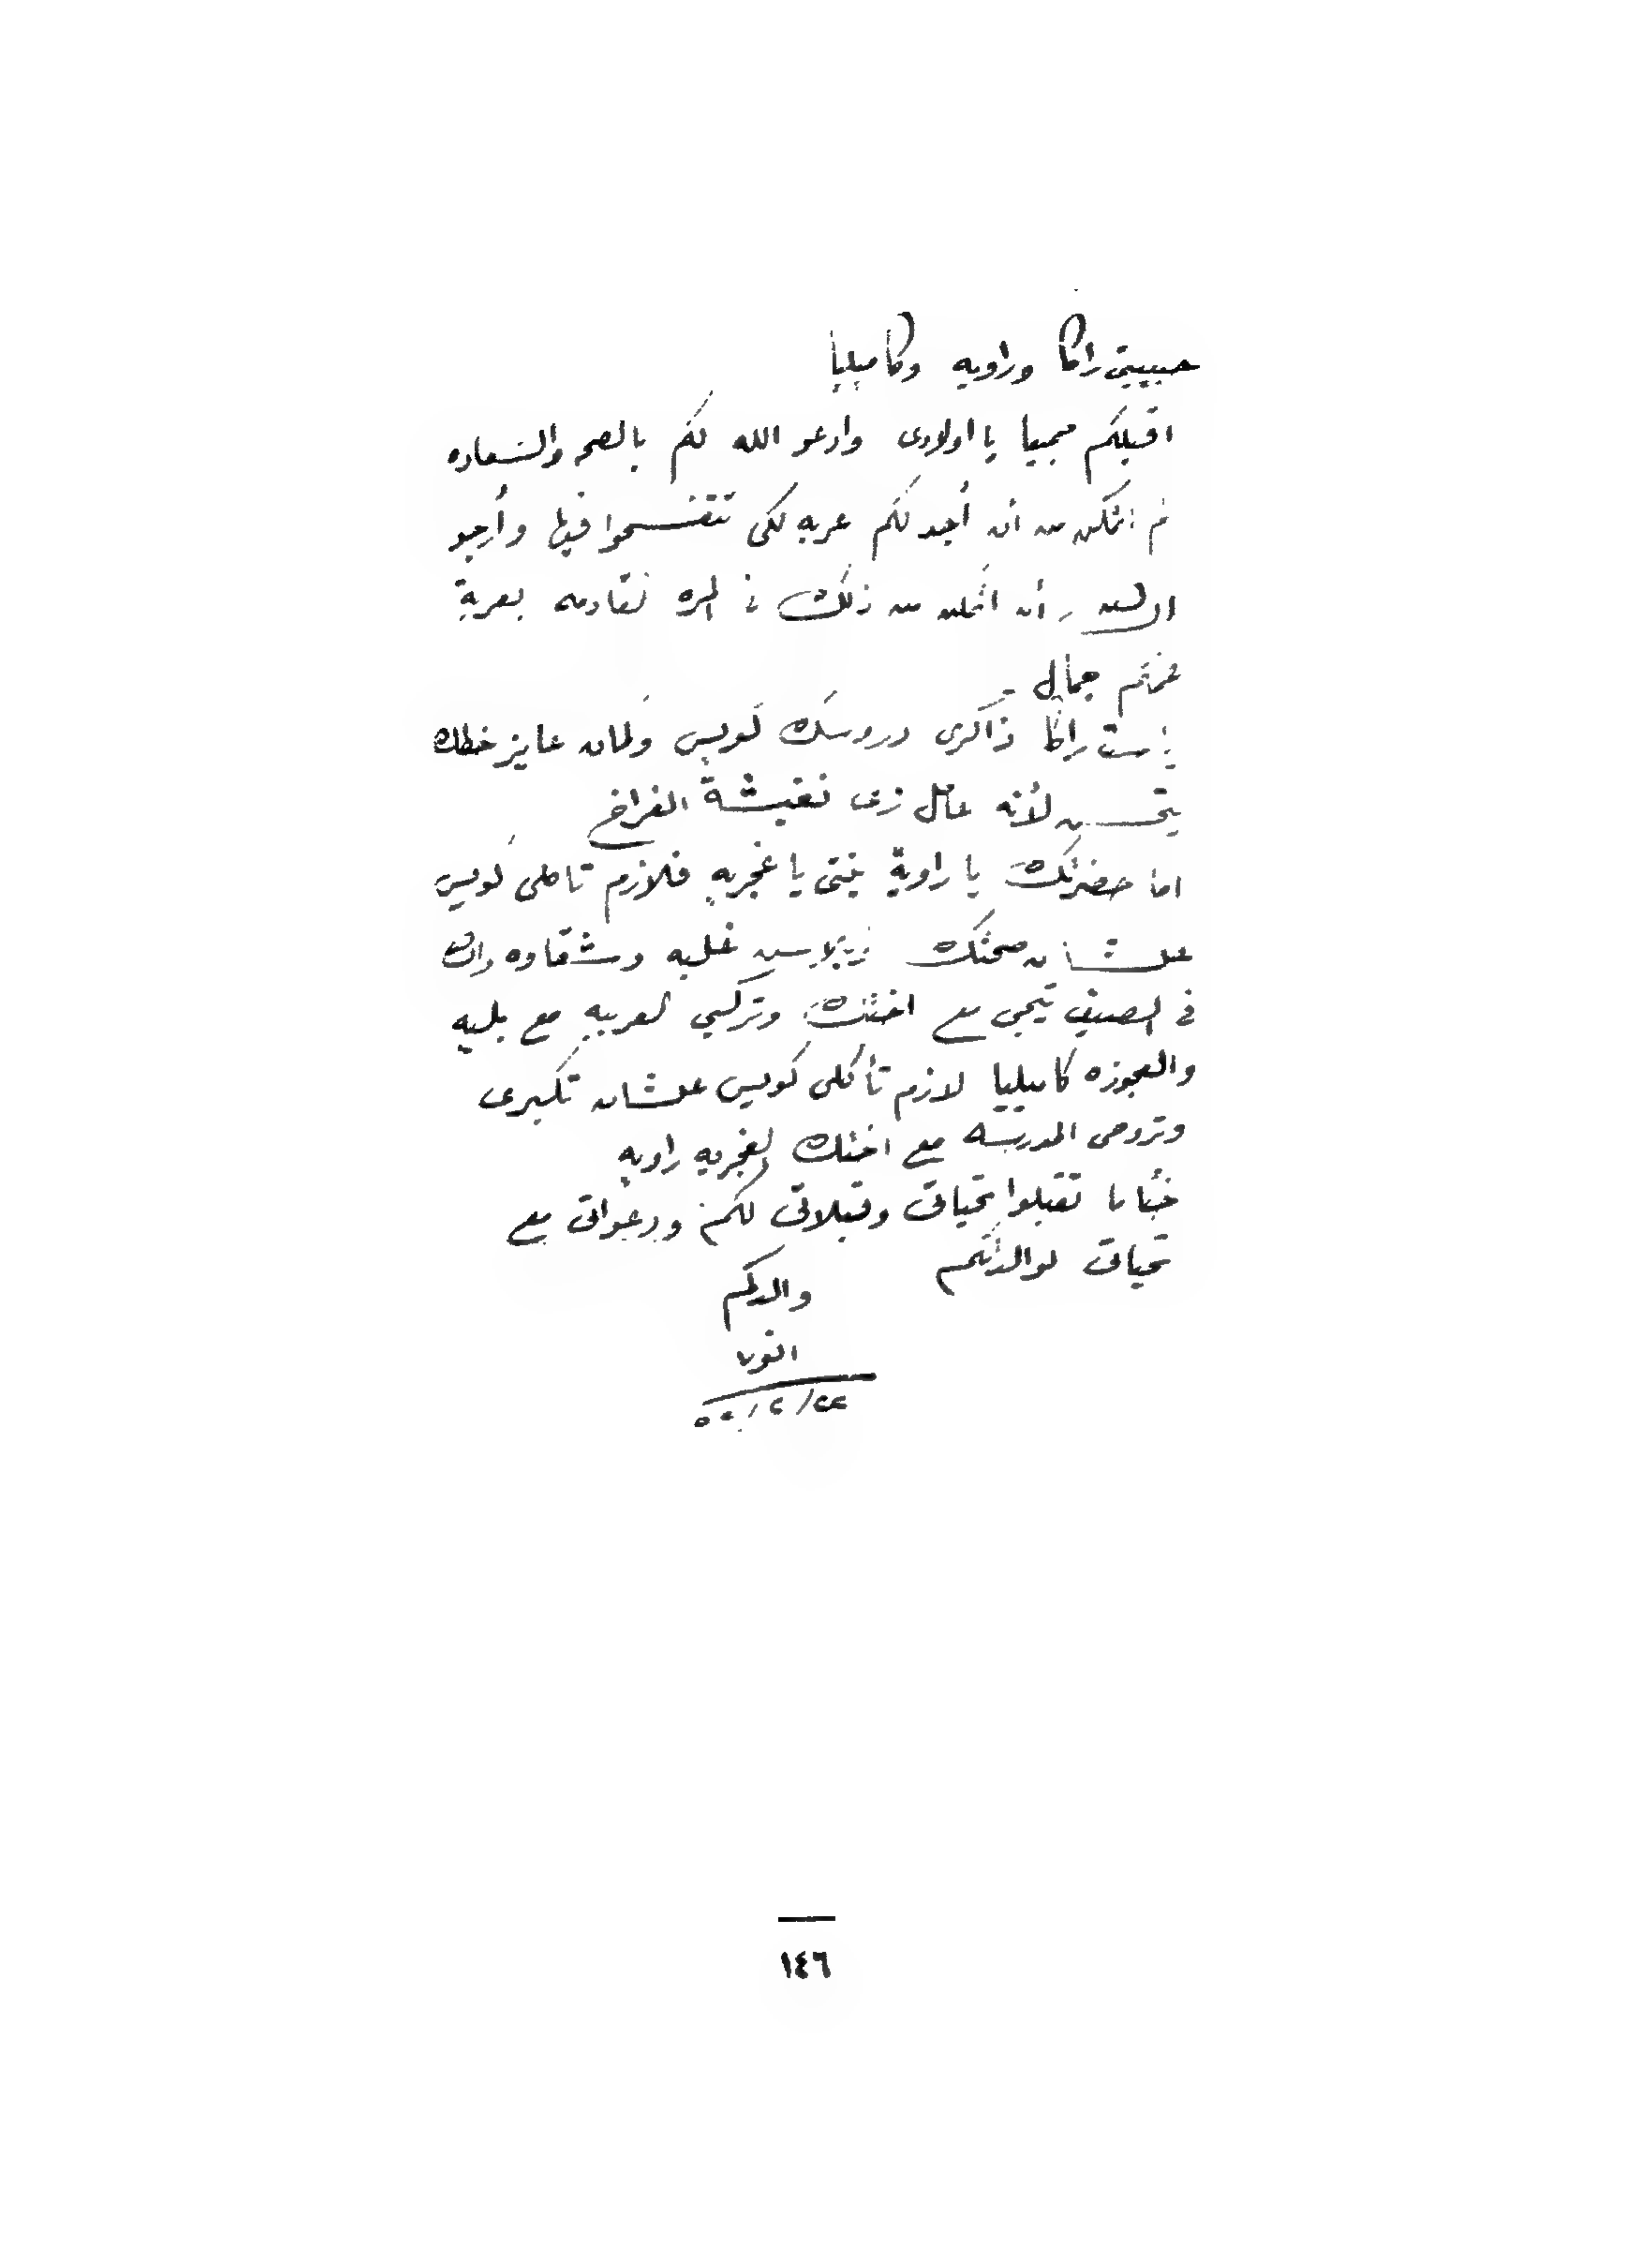 حبيبتى راكا وراويه وكاميليا
اقبلكم جميعا يا اولادى وادعو الله لكم بالصحه والسعاده
لم اتمكن من أن أجد لكم عربه لكى تتفسحوا فيها وأرجو
أن اتمكن من ذلك فى المره القادمه بعربة
عمكم جمال
يا ست راكا ذاكرى دروسك كويس وكمان عايز خطك
يتحسن لأنه عامل زى نغبشة الفراخ
اما حضرتك يا راوية يعنى يا غجريه فلازم تاكلى كويس
علشان صحتك غلبه وشقاوه وان
فى الصيف تيجى مع اختك وتركبى العربيه مع بليه
والعجوزه كاميليا لازم تأكلى كويس علشان تكبرى
وتروحى المدرسه مع اختك الغجريه راويه
ختاما تقبلوا تحياتى وقبلاتى لكم ودعواتى مع
تحياتى لوالدتكم
والدكم
انور
١٤٦